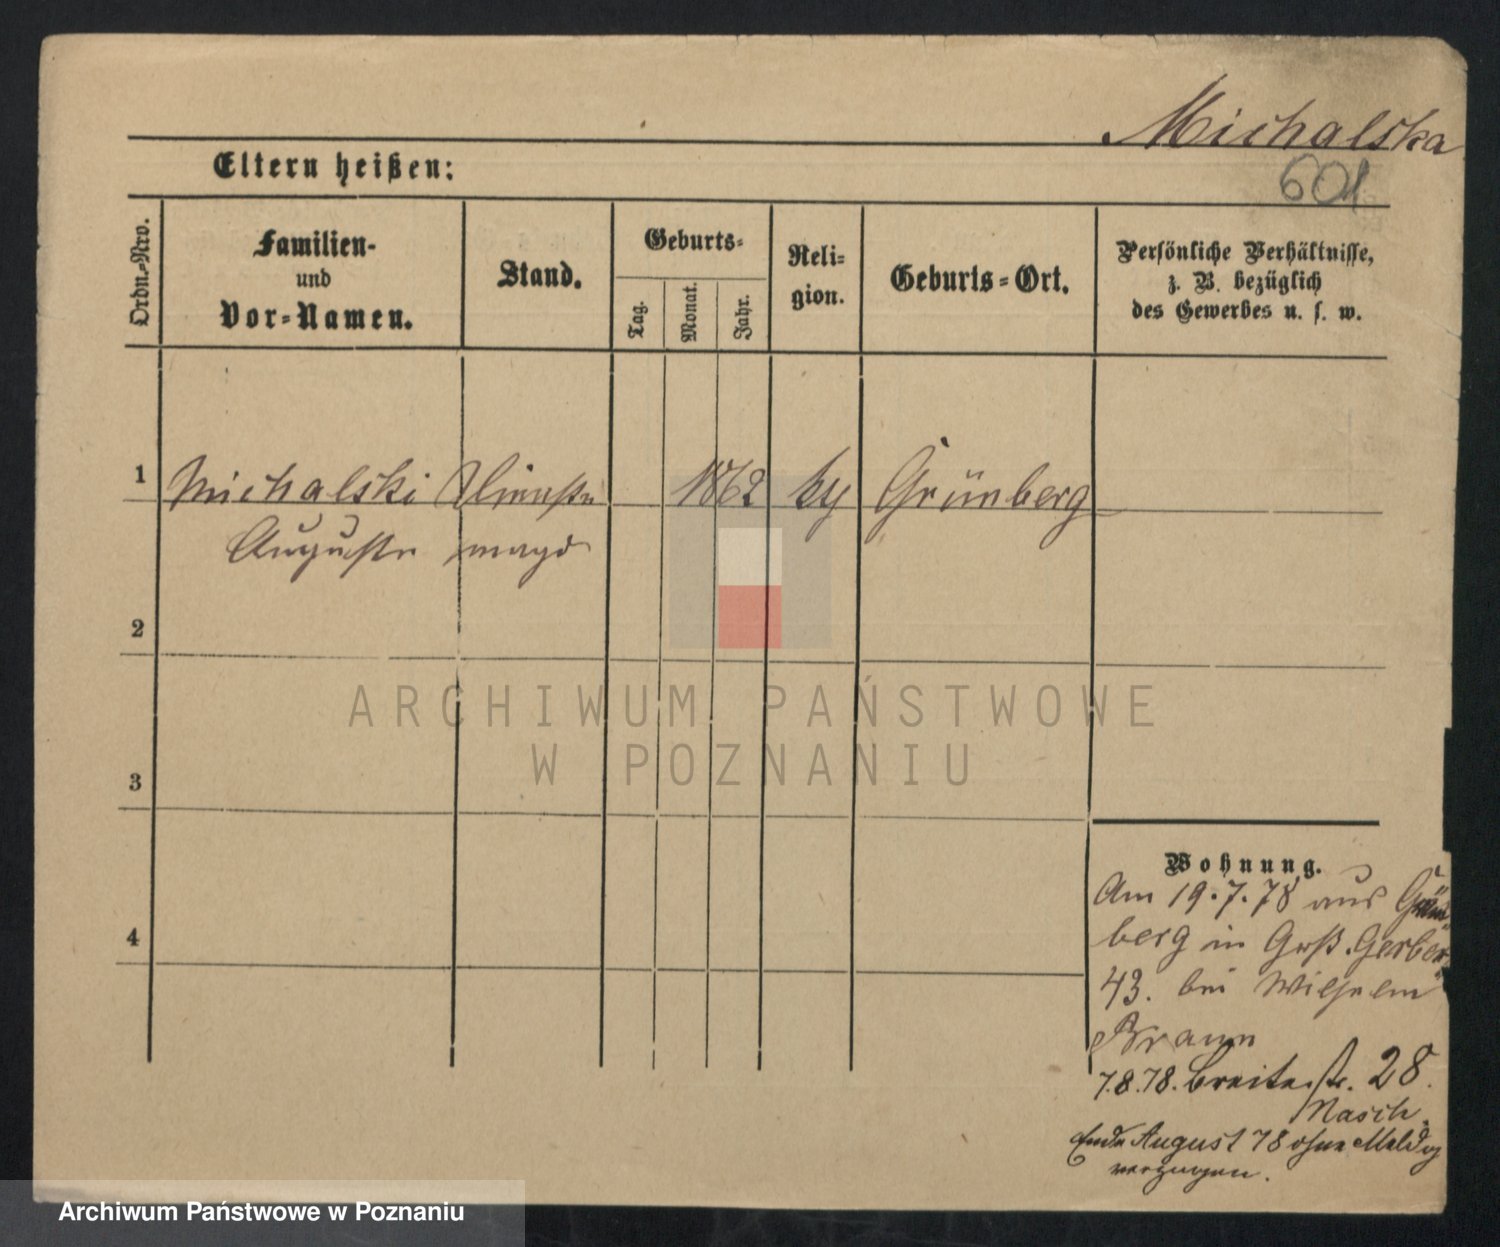 Michalska
601
Eltern heißen:
Ordn.-Nro.
Familien-
und
Vor-Namen.
Stand.
Geburts-
Tag.
Monat.
Jahr.
Reli-
gion.
Geburts-Ort.
Persönliche Verhältnisse,
z. B. bezüglich
des Gewerbes u. s. w.
1 Michalski Dienst 1862 Grünberg
Auguste magd
2
3
4
Wohnung.
Am 19.7.78 aus Grün
berg in Groß Gerber
43. bei Wilhelm
Braun
7.8.78. Breitestr. 28.
Masch.
Ende August 78 ohne Meldg
verzogen.
ARCHIWUM PAŃSTWOWE
W POZNANIU
Archiwum Państwowe w Poznaniu